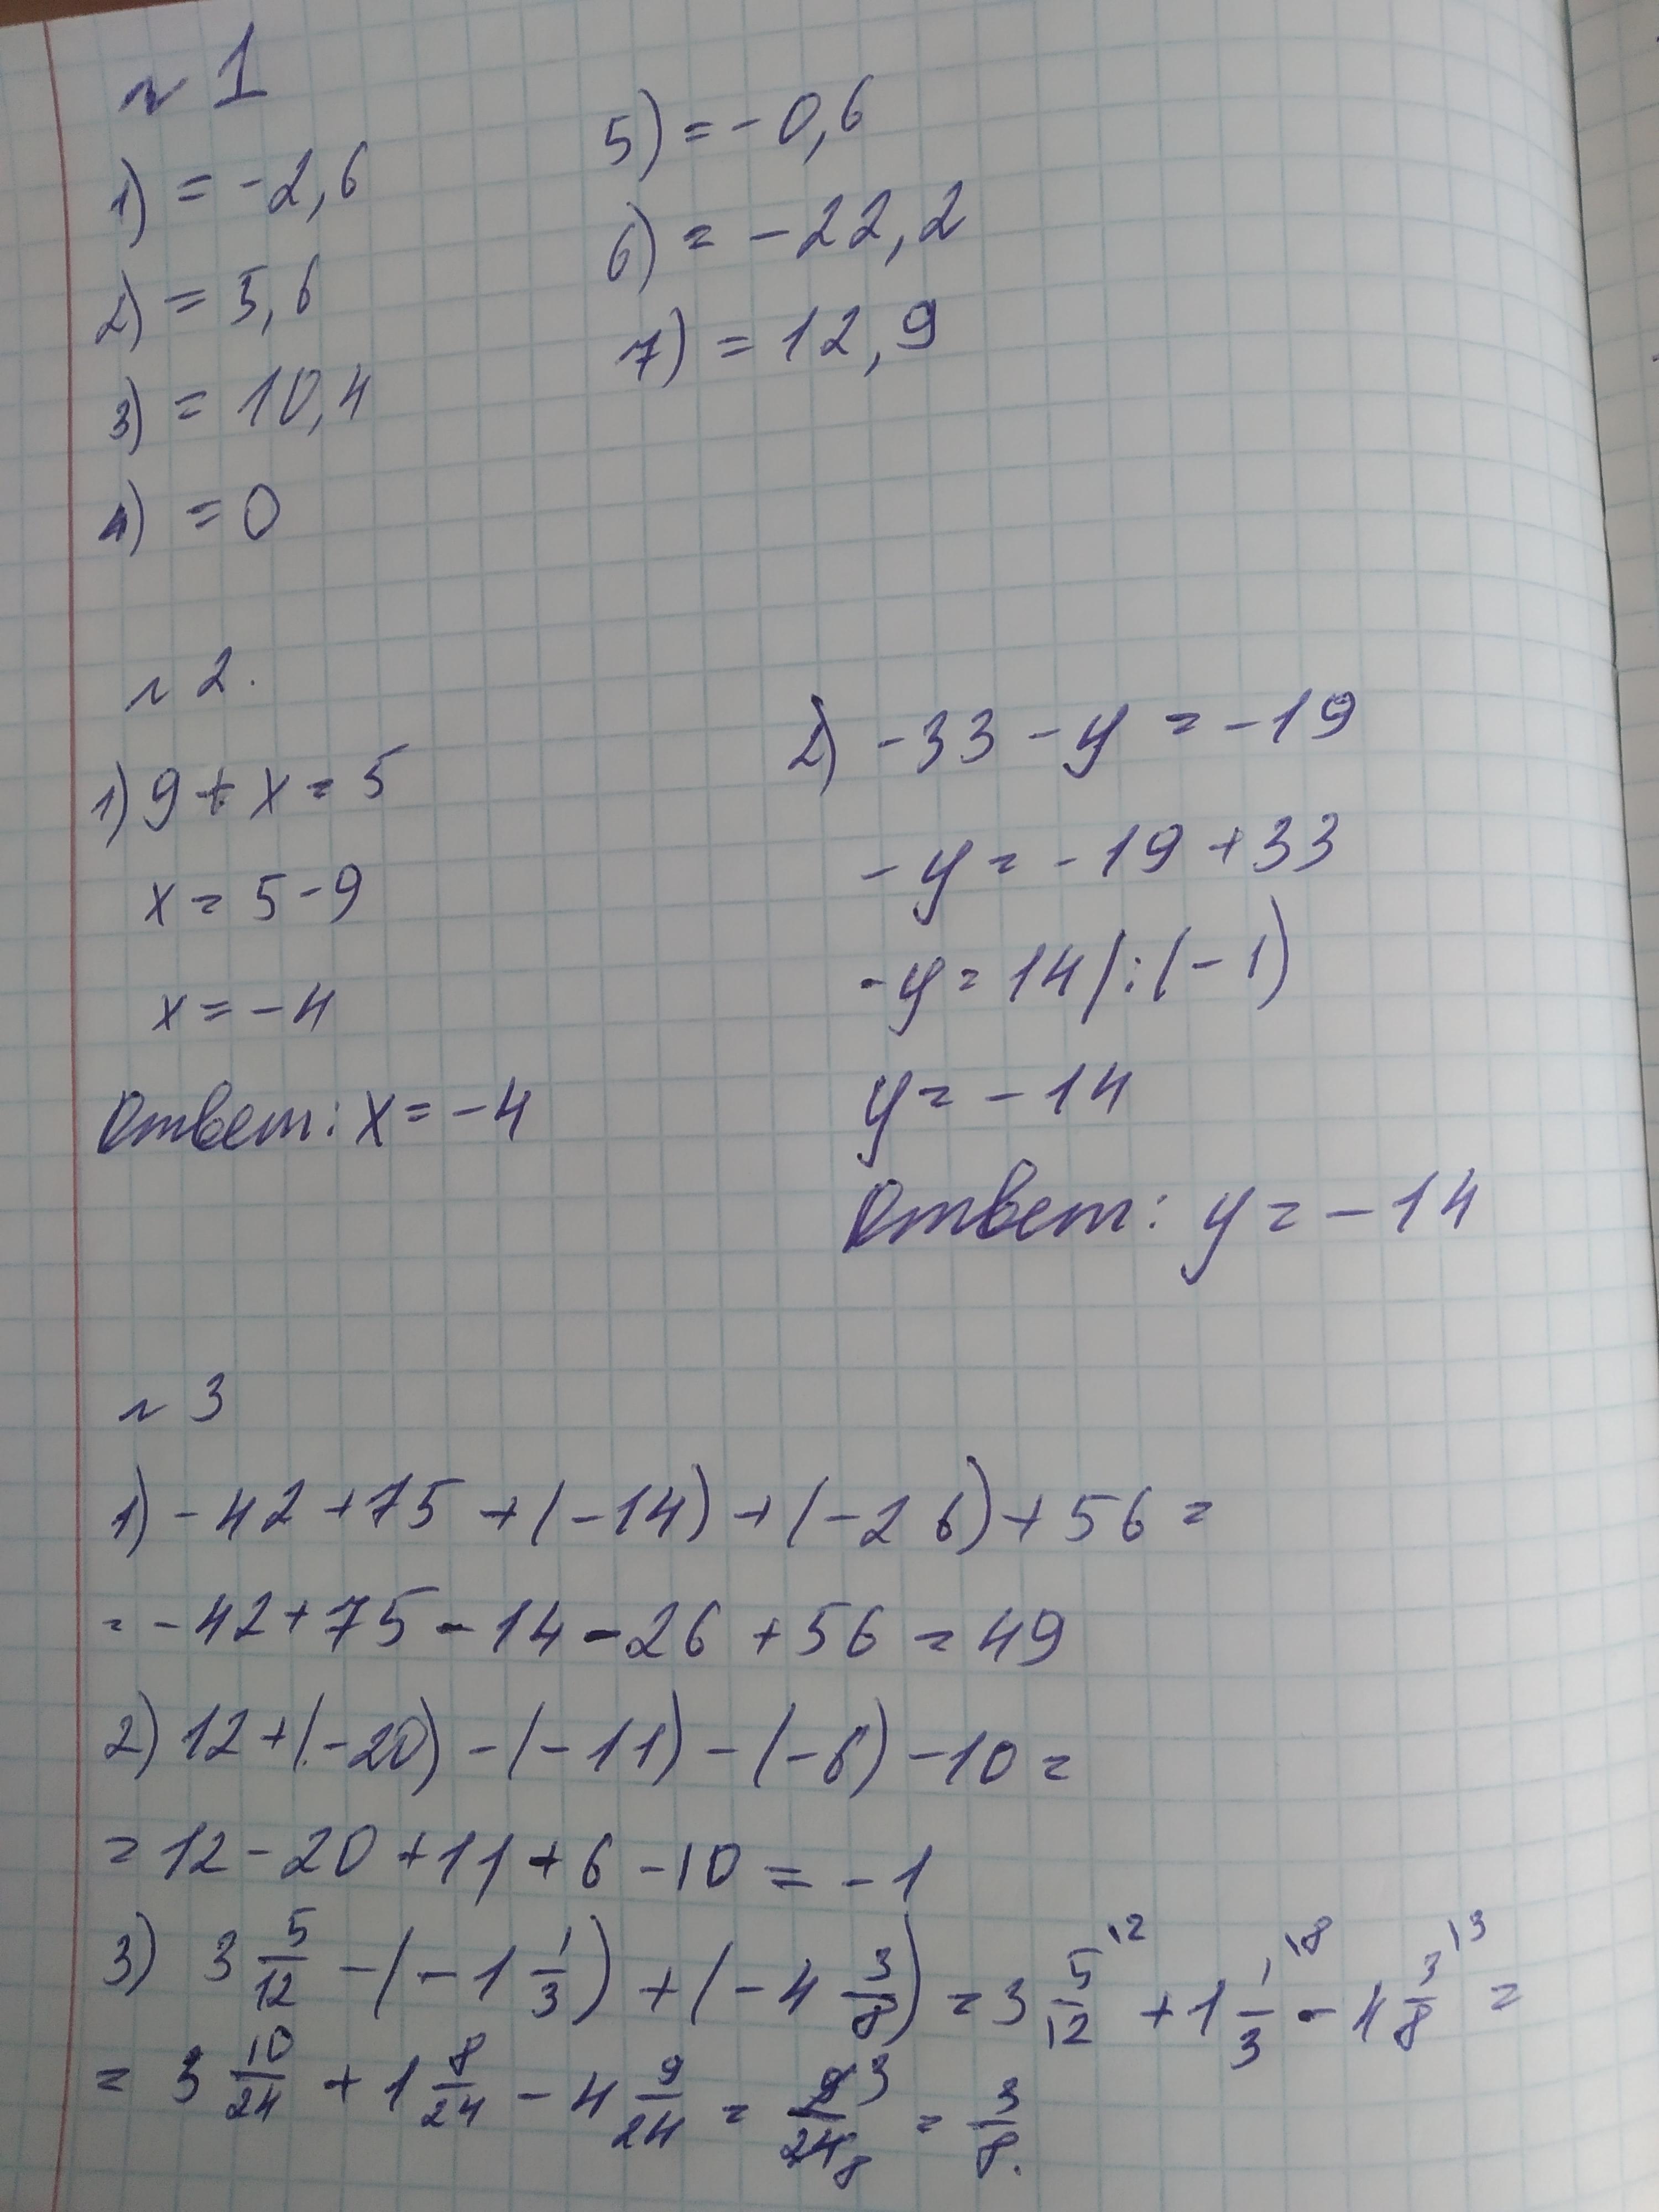 № 1
1) = -2,6
2) = 5,6
3) = 10,4
4) = 0
5) = -0,6
6) = -22,2
7) = 12,9
№ 2.
1) 9 + x = 5
x = 5 - 9
x = -4
Ответ: x = -4
2) -33 - y = -19
-y = -19 + 33
-y = 14 /:(-1)
y = -14
Ответ: y = -14
№ 3
1) -42 + 75 + (-14) + (-26) + 56 =
= -42 + 75 - 14 - 26 + 56 = 49
2) 12 + (-20) - (-11) - (-6) - 10 =
= 12 - 20 + 11 + 6 - 10 = -1
3) 3 5/12 - (-1 1/3) + (-4 3/8) = 3 5\2/12 + 1 1\8/3 - 4 3\3/8 =
= 3 10/24 + 1 8/24 - 4 9/24 = 9 3/24 8 = 3/8.